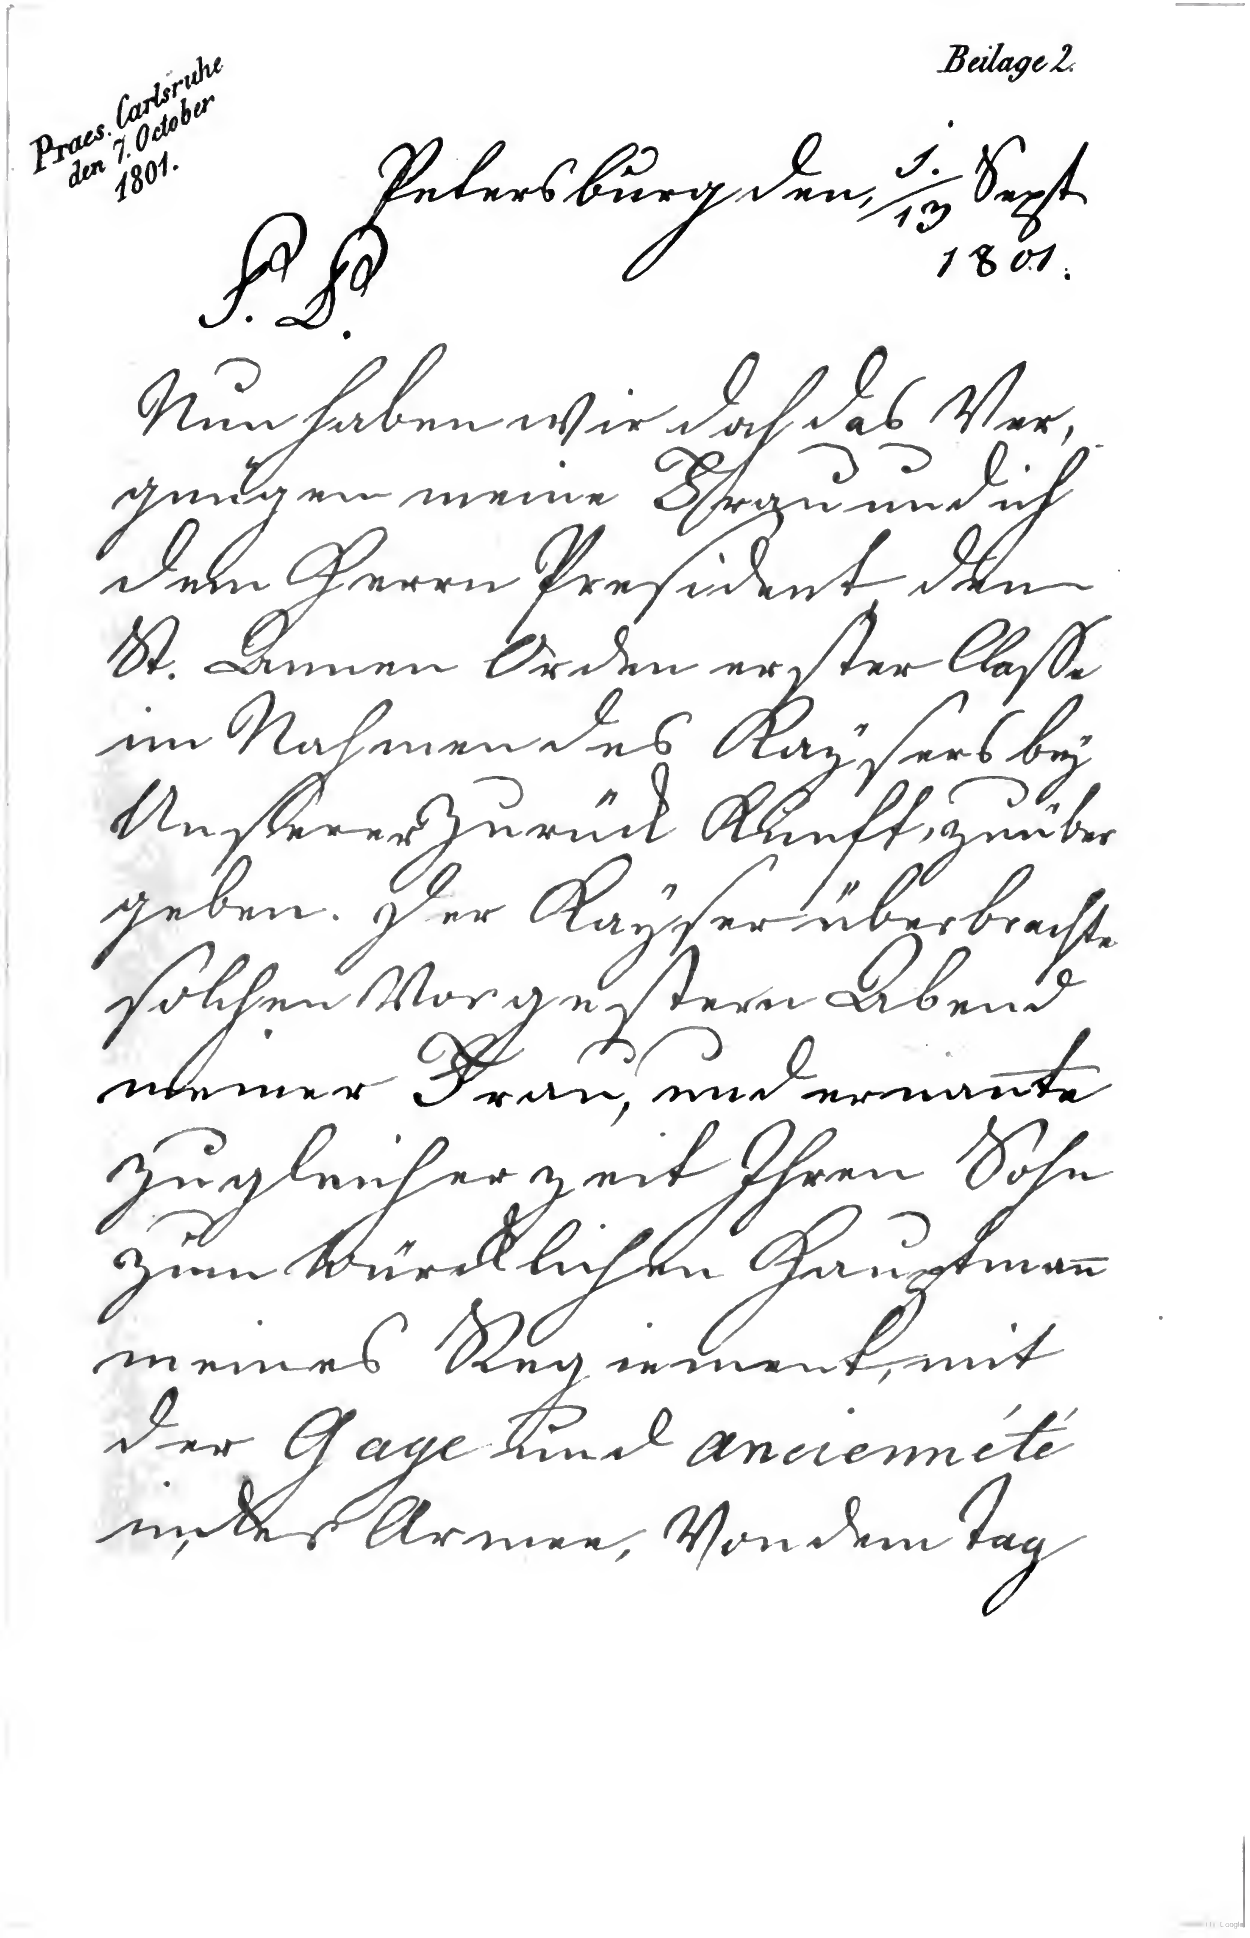 Beilage 2.
Praes. Carlsruhe
den 7. October
1801.
Petersburg den, 1./13 Sept
1801.
P. P.
Nun haben wir doch das Ver,
gnügen meine Frau und ich
dem Herrn President den
St. Annen Orden erster Classe
im Nahmen des Kaÿsers beÿ
Unsserer zurück Kunft, zu über
geben. Der Kaÿser überbrachte
solchen Vorgestern Abend
meiner Frau, und ernan̄te
zu gleicher zeit Ihren Sohn
zum würcklichen Hauptman̄
meines Regiement, mit
der Gage und anciennété
in, der Armee, Von dem Tag